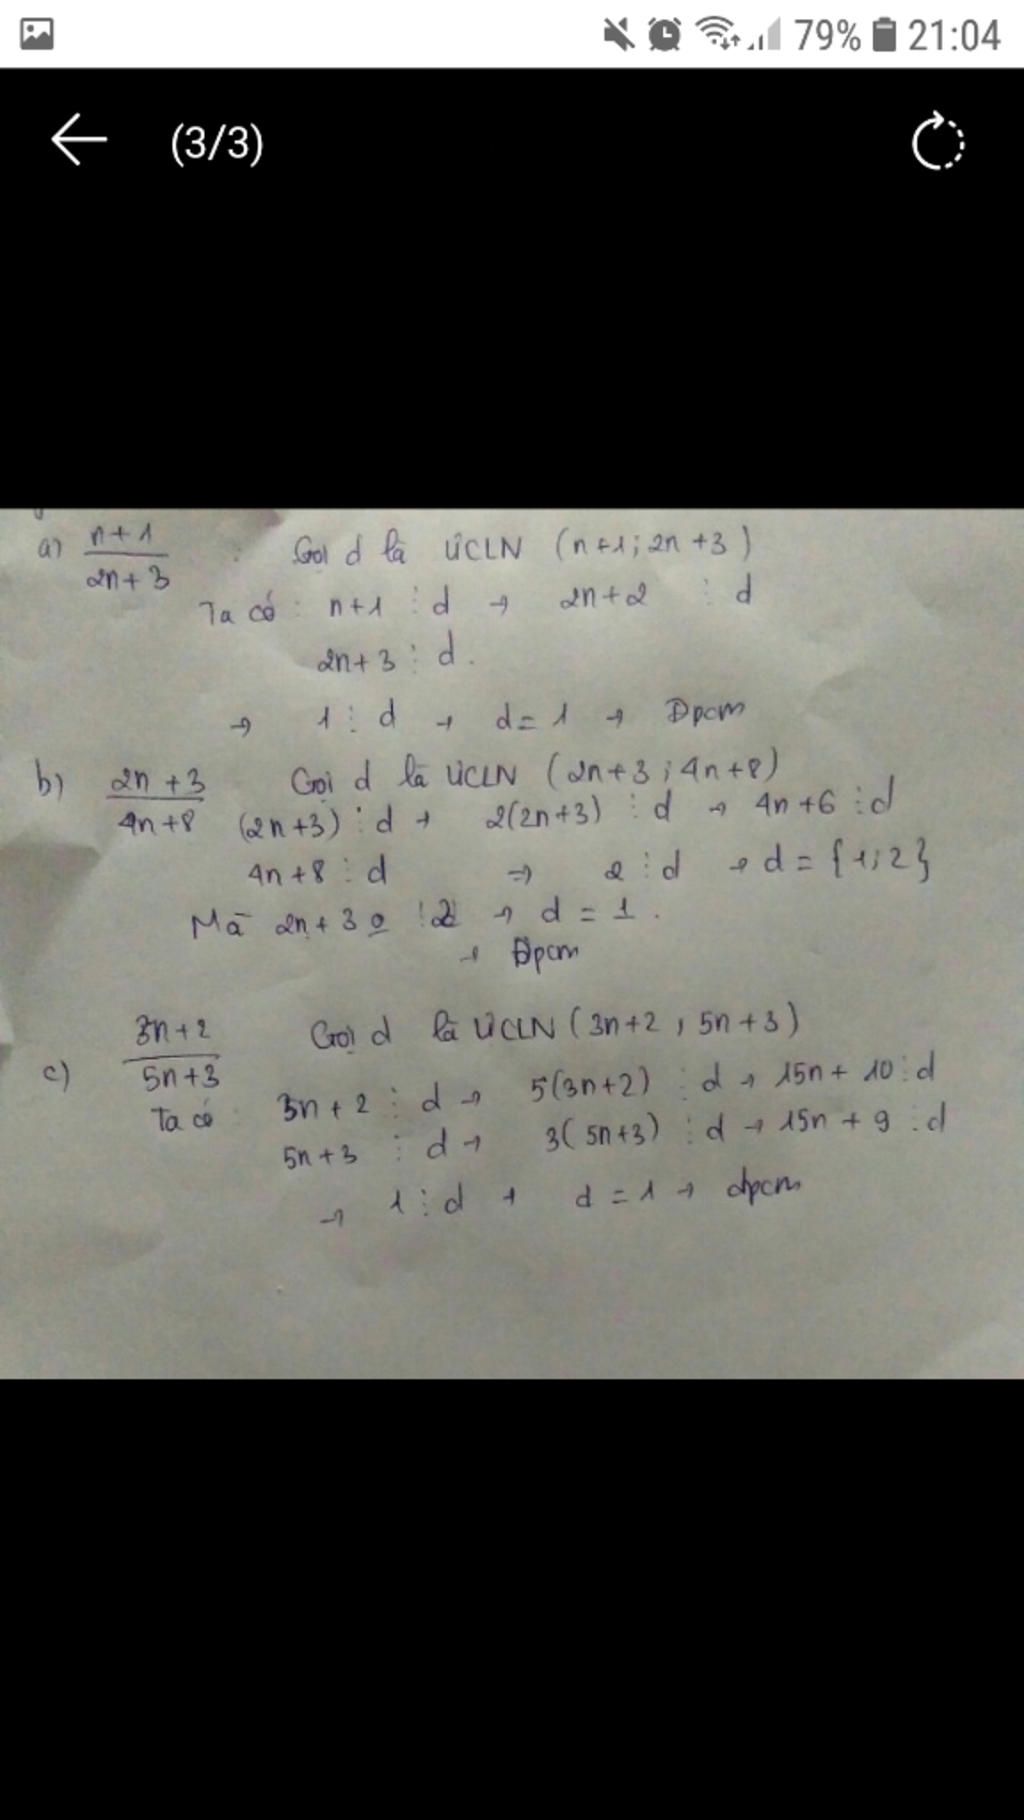 79% 21:04
(3/3)
a) n+1 / 2n+3 : Gọi d là ƯCLN (n+1; 2n+3)
Ta có: n+1 ⋮ d → 2n+2 ⋮ d
2n+3 ⋮ d.
→ 1 ⋮ d → d=1 → Đpcm
b) 2n+3 / 4n+8 Gọi d là ƯCLN (2n+3; 4n+8)
(2n+3) ⋮ d → 2(2n+3) ⋮ d → 4n+6 ⋮ d
4n+8 ⋮ d ⇒ 2 ⋮ d → d = {1; 2}
Mà 2n+3 o ⋮ 2 → d = 1.
→ Đpcm
c) 3n+2 / 5n+3 Gọi d là ƯCLN (3n+2, 5n+3)
Ta có 3n+2 ⋮ d → 5(3n+2) ⋮ d → 15n+10 ⋮ d
5n+3 ⋮ d → 3(5n+3) ⋮ d → 15n+9 ⋮ d
→ 1 ⋮ d → d=1 → đpcm